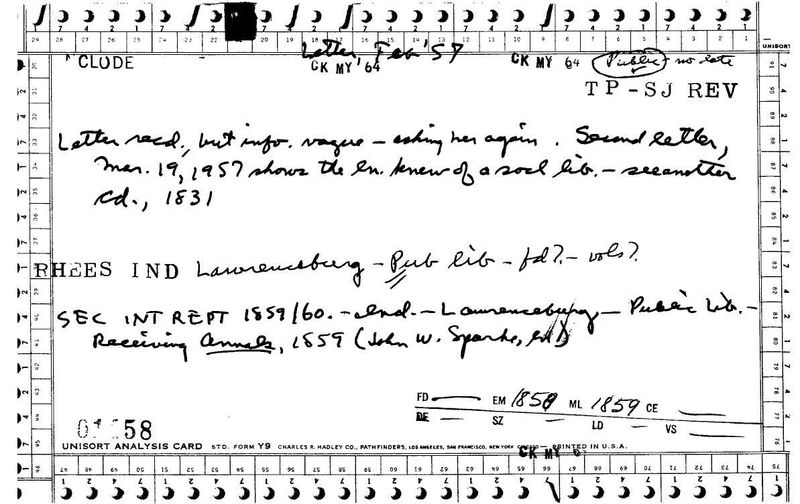 Letter, Feb '57
CK MY '64 CK MY 64 Public - no date
CLUDE
TP-SJ REV
Letter recd, but info. vague - asking her again. Second letter,
Mar. 19, 1957 shows the ln. knew of a socl lib. - see another
cd., 1831
RHEES IND Lawrenceburg - Pub lib - fd?. - vols?.
SEC INT REPT 1859/60. - Ind. - Lawrenceburg - Public Lib. -
Receiving Annals, 1859 (John W. Sparks,
FD — EM 1858 ML 1859 CE —
DE — SZ — LD — VS —
58
UNISORT ANALYSIS CARD STD. FORM Y9 CHARLES R. HADLEY CO., PATHFINDERS, LOS ANGELES, SAN FRANCISCO, NEW YORK PRINTED IN U.S.A.
CK MY 6